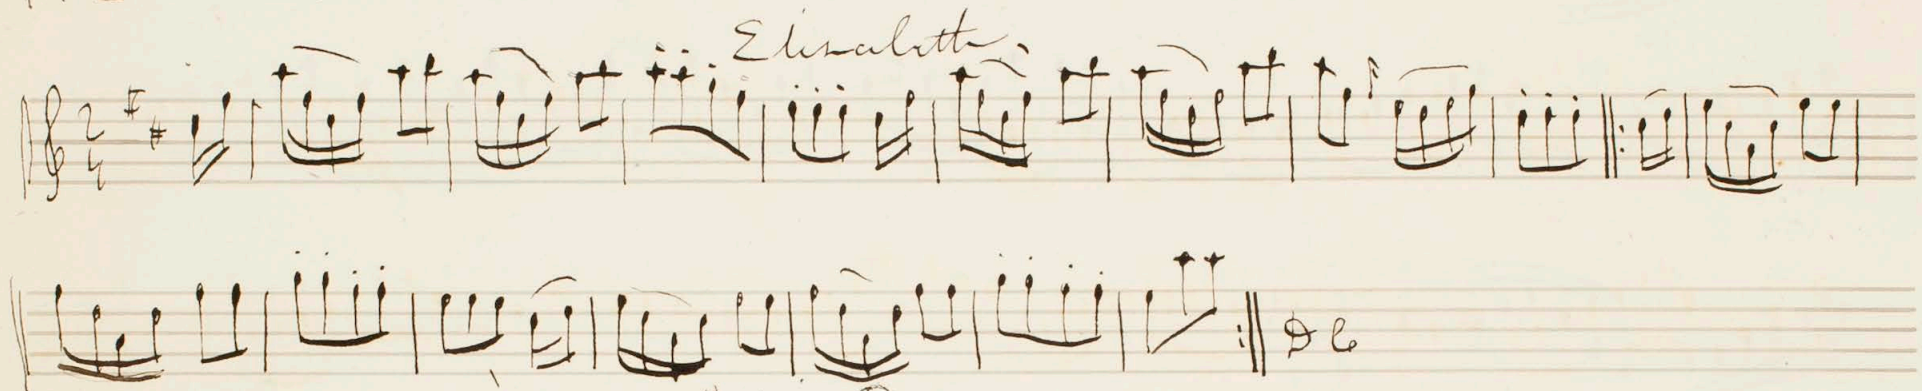 Elisabeth
2
4
D C